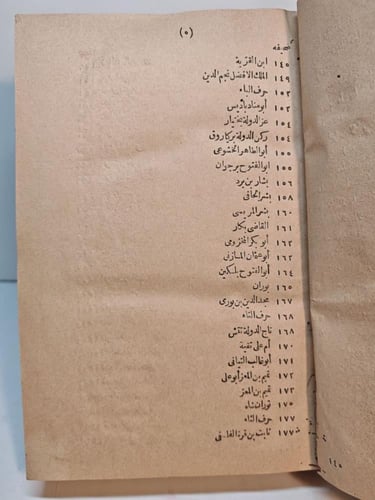 (٥)
صحيفه
١٤٥ ابن القرية
١٤٩ الملك الافضل نجم الدين
١٥٢ حرف الباء
١٥٢ أبو مناد باديس
١٥٤ عز الدولة بختيار
١٥٤ ركن الدولة بركياروق
١٥٥ أبو الطاهر الخشوعى
١٥٥ ابو الفتوح برجوان
١٥٦ بشار بن برد
١٥٨ بشر الحافى
١٦٠ بشر المريسى
١٦١ القاضى بكار
١٦٢ أبو بكر المخزومى
١٦٣ أبو عثمان المازنى
١٦٤ أبو الفتوح بلكين
١٦٥ بوران
١٦٧ مجد الدين بن بورى
١٦٨ حرف التاء
١٦٨ تاج الدولة تتش
١٧٠ أم على تقية
١٧١ أبو غالب التيانى
١٧٢ تميم بن المعز أبو على
١٧٣ تميم بن المعز
١٧٥ توران شاه
١٧٧ حرف الثاء
١٧٧ ثابت بن قرة
١٤٥